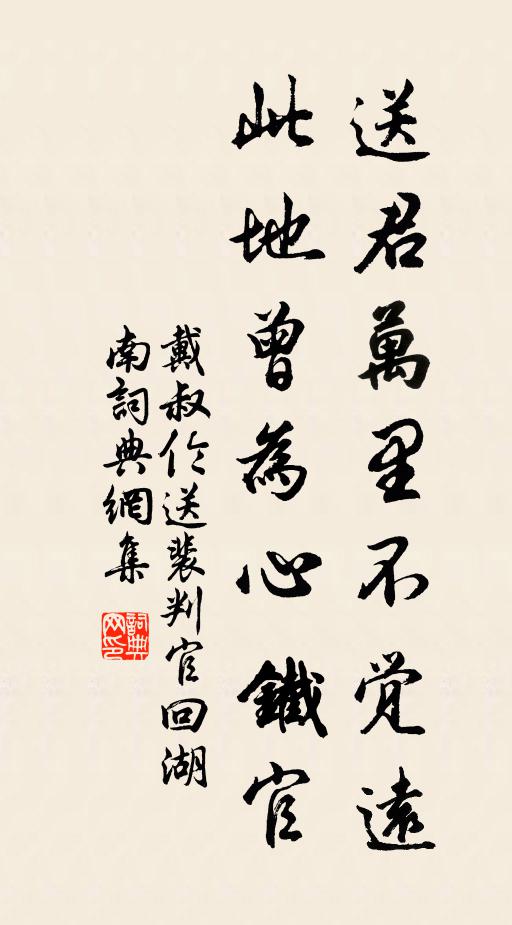 送君萬里不覚遠
此地曾為心鐵官
戴叔伦送裴判官回湖
南詞典網集
詞典网印